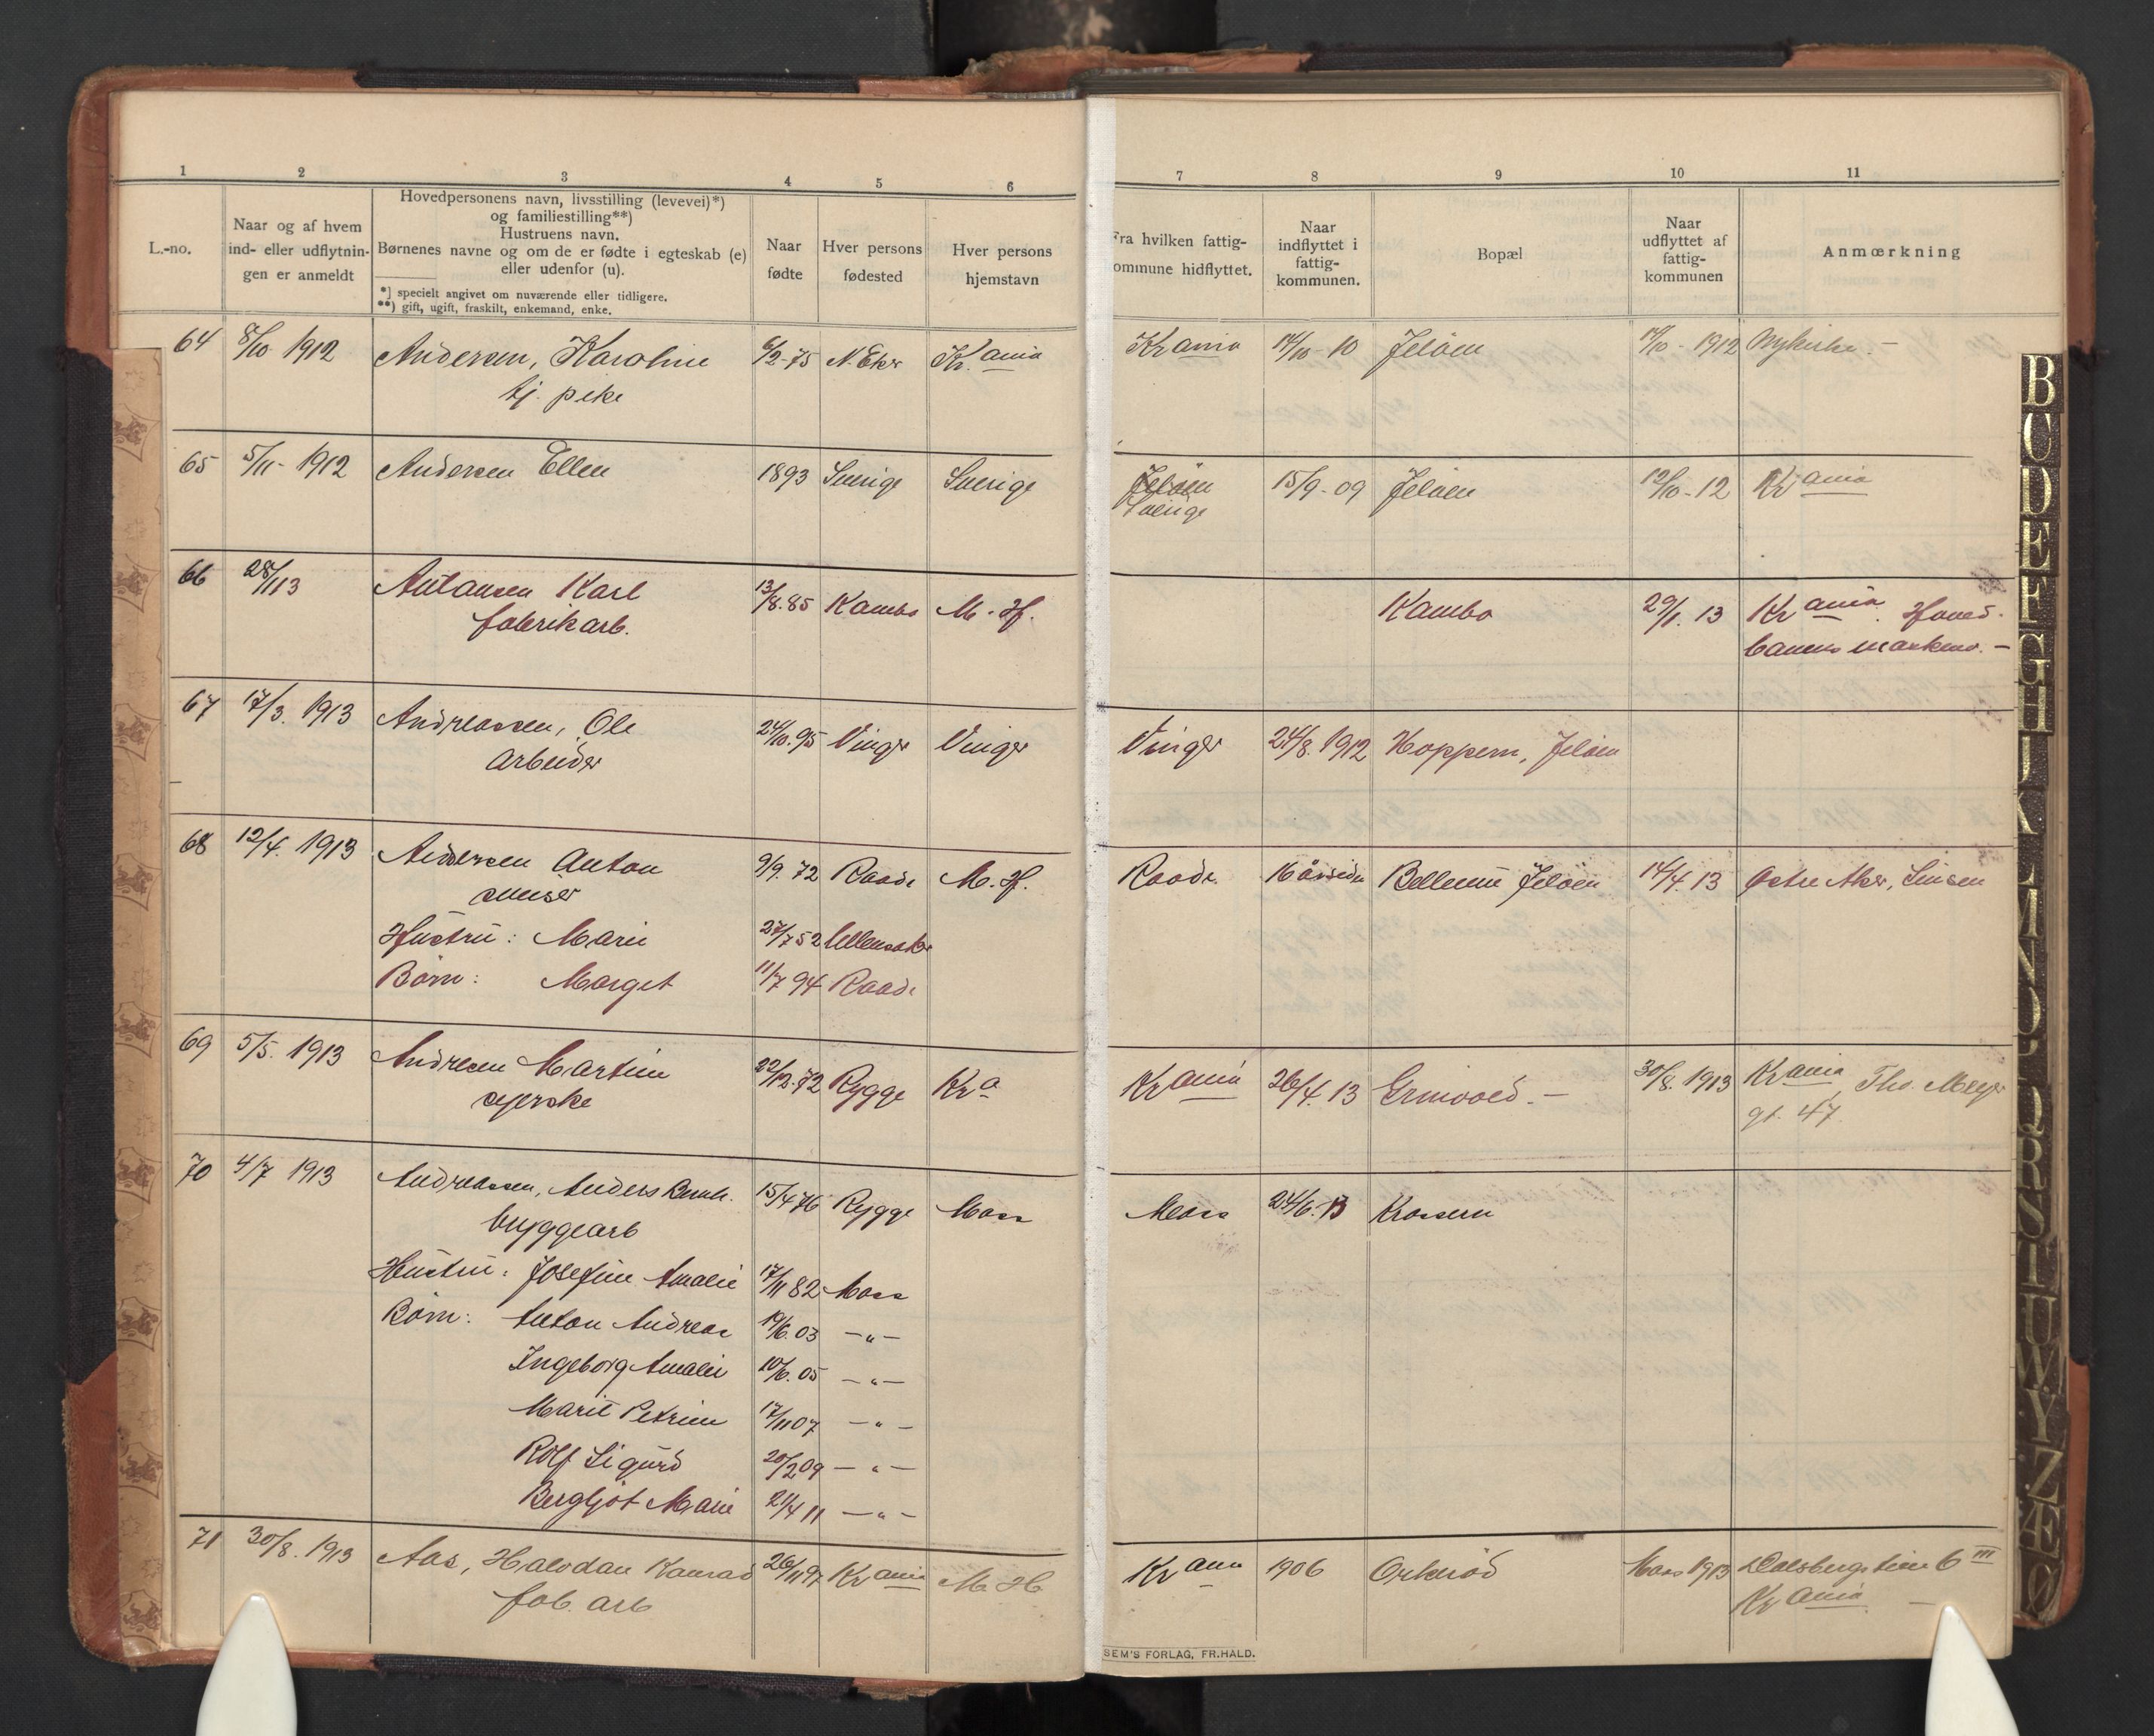 1 2 3 4 5 6 7 8 9 10 11
L.-no.
Naar og af hvem
ind- eller udflytnin-
gen er anmeldt
Hovedpersonens navn, livsstilling (levevei)*)
og familiestilling**)
Hustruens navn.
Børnenes navne og om de er fødte i egteskab (e)
eller udenfor (u).
*] specielt angivet om nuværende eller tidligere.
**) gift, ugift, fraskilt, enkemand, enke.
Naar
fødte
Hver persons
fødested
Hver persons
hjemstavn
Fra hvilken fattig-
ommune hidflyttet.
Naar
indflyttet i
fattig-
kommunen.
Bopæl
Naar
udflyttet af
fattig-
kommunen
Anmærkning
64 8/10 1912 Andersen, Karoline 6/2-75 N. Eker Kr.ania Krania 14/10-10 Jeløen 14/10-1912 Nykirke.-
tj. pike
65 5/11-1912 Andersen Ellen 1893 Sverige Sverige Jeløen 15/9-09 Jeløen 12/10-12 Krania
Sverige
66 28/1 13 Antonsen Karl 13/8.85 Kambo M. H. Kambo 29/1. 13 Krania. Hoved-
fabrikarb. banens
67 17/3. 1913 Andreassen, Ole 24/10.95 Vinger Vinger Vinger 24/8. 1912 Hoppern, Jeløen
arbeider
68 12/4. 1913 Andersen Anton 9/9. 72 Raade M. H. Raade. 16 år siden Bellevue Jeløen 14/4. 13 Østre Aker, Sinsen
Hustru: Marie 27/7 52 Ullensaker
Børn: Marget 11/7 94 Raade
69 5/5. 1913 Andresen Martine 22/12.72 Rygge Kr.a Krania 26/4. 13 Grinvold.- 30/8. 1913 Krania, Ths. Meyer
syerske gt. 47.
70 4/7 1913 Andreassen, Anders Bernh. 15/4 76 Rygge Moss Moss 24/6.13 Krossern
byggearb
Hustru: Josefine Amalie 17/11 82 Moss
Børn: Anton Andreas 19/6. 03 -"-
Ingeborg Amalie 10/6. 05 -"-
Marie Petrine 17/11 07 -"-
Rolf Sigurd 20/2 09 -"-
Bergljot Marie 21/4 11 -"-
71 30/8. 1913 Aas, Halvdan Konrad 26/11 97 Krania M. H. Krania 1906 Orkerød Mars 1913 Dalsbergstien 6 III
fab. arb Krania -
SEM'S FORLAG, FR.HALD.
B
C
D
E
F
G
H
I
K
L
M
N
O
P
Q
R
S
T
U
W
Y
Z
Æ
Ø